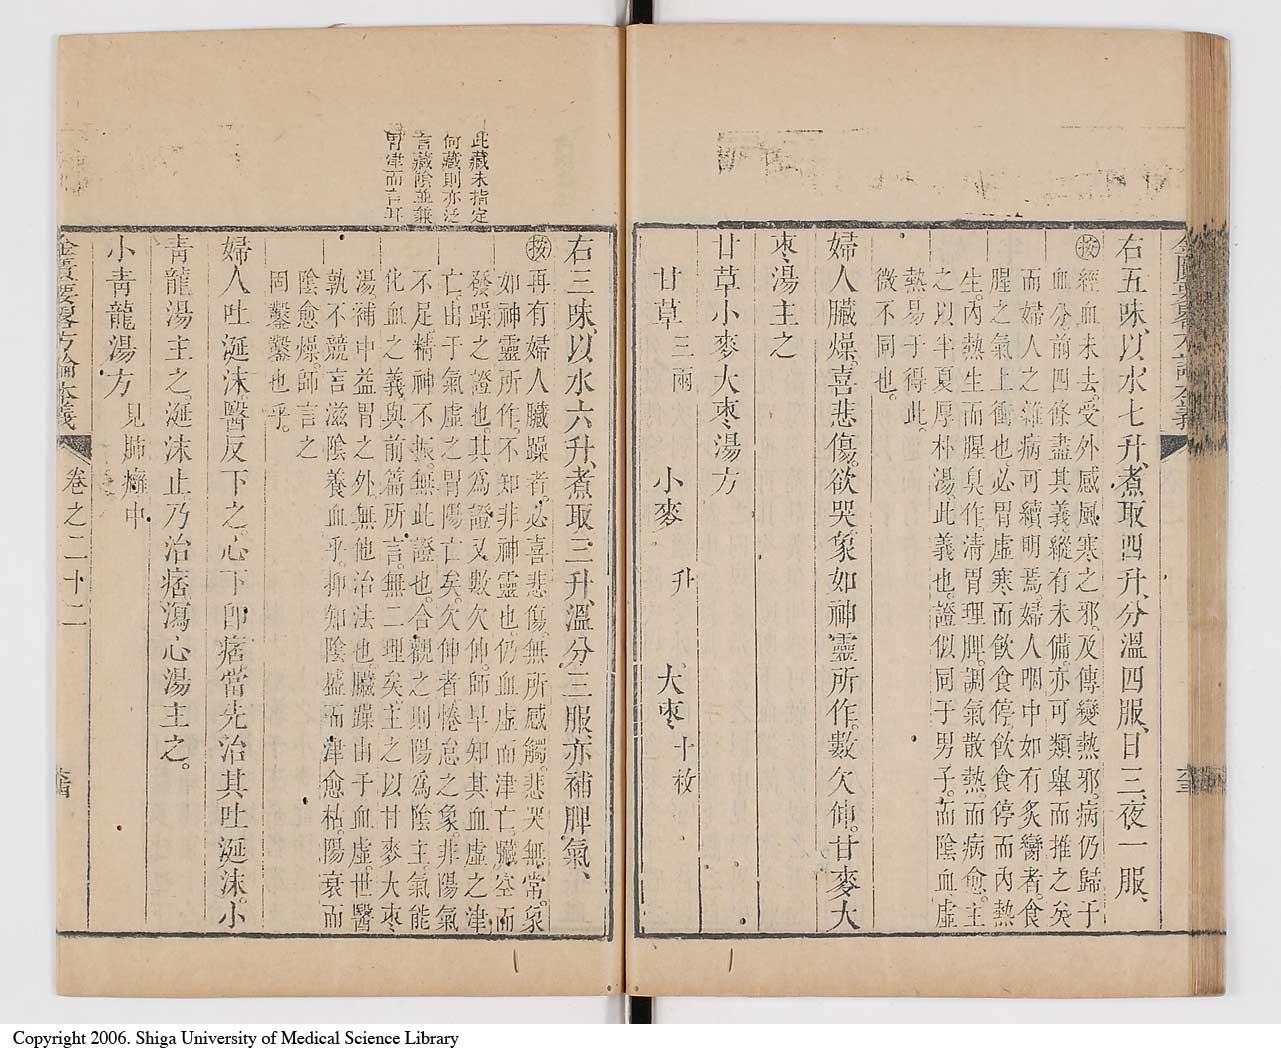 右五味、以水七升、煮取四升、分溫四服、日三夜一服、
按經血未去。受外感風寒之邪。及傳變熱邪。病仍歸于
血分。前四條盡其義。縱有未備。亦可類舉而推之矣
而婦人之雜病可續明焉。婦人咽中如有炙臠者。食
腥之氣上衝也。必胃虛寒而飲食停。飲食停而內熱
生。內熱生而腥臭作。清胃理脾。調氣散熱。而病愈。主
之以半夏厚朴湯。此義也。證似同于男子。而陰血虛
熱易于得此。
微不同也。
婦人臟燥。喜悲傷。欲哭。象如神靈所作。數欠伸。甘麥大
棗湯主之
甘草小麥大棗湯方
甘草三兩 小麥 升 大棗十枚
金匱要略方論本義
右三味、以水六升、煮取三升、溫分三服、亦補脾氣、
按再有婦人臟躁者。必喜悲傷。無所感觸。悲哭無常。象
如神靈所作。不知非神靈也。仍血虛而津亡。臟空而
發躁之證也。其爲證又數欠伸。師早知其血虛之津
亡。由于氣虛之胃陽亡矣。欠伸者倦怠之象。非陽氣
不足。精神不振。無此證也。合觀之則陽爲陰主。氣能
化血之義與前篇所言。無二理矣。主之以甘麥大棗
湯。補中益胃之外。無他治法也。臟躁由于血虛。世醫
孰不競言滋陰養血乎。抑知陰盛而津愈枯。陽衰而
陰愈燥。師言之
固鑿鑿也乎。
婦人吐涎沫。醫反下之。心下卽痞。當先治其吐涎沫。小
靑龍湯主之。涎沫止。乃治痞瀉心湯主之。
小靑龍湯方 見肺癰中
此藏未指定
何藏則亦泛
言藏陰並兼
胃津而言耳
金匱要略方論本義 卷之二十二